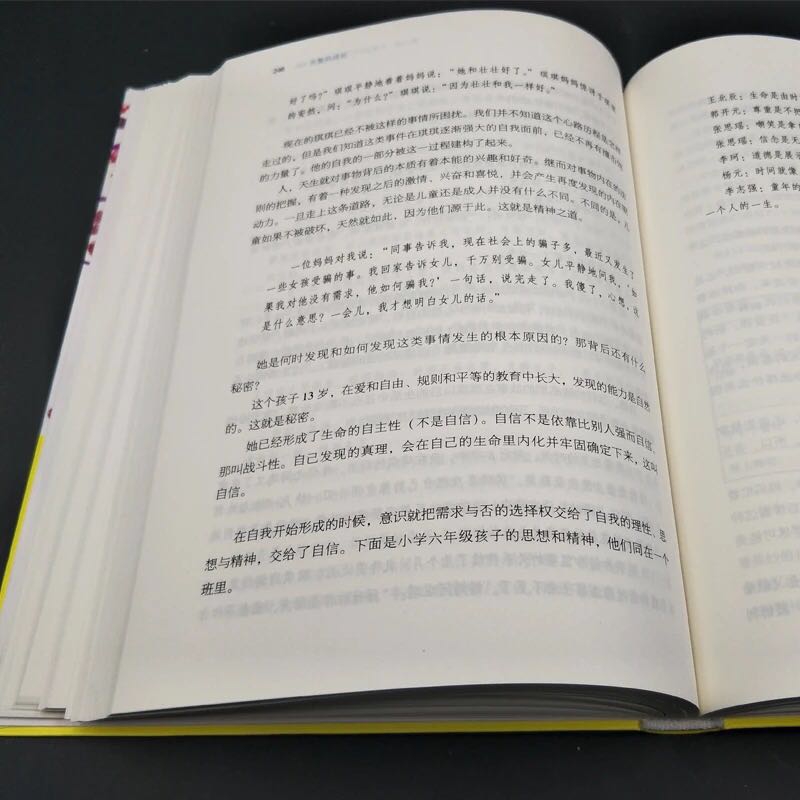 好了吗?”琪琪平静地看着妈妈说:“她和壮壮好了。”琪琪妈妈惊讶于琪琪
的安然,问:“为什么?”琪琪说:“因为壮壮和我一样好。”
现在的琪琪已经不被这样的事情所困扰。我们并不知道这个心路历程是怎样
走过的,但是我们知道这类事件在琪琪逐渐强大的自我面前,已经不再有撞击她
的力量了。他的自我的一部分被这一过程建构了起来。
人,天生就对事物背后的本质有着本能的兴趣和好奇。继而对事物内在的规
则的把握,有着一种发现之后的激情、兴奋和喜悦,并会产生再度发现的内在驱
动力。一旦走上这条道路,无论是儿童还是成人并没有什么不同。不同的是,儿
童如果不被破坏,天然就如此,因为他们源于此。这就是精神之道。
一位妈妈对我说:“同事告诉我,现在社会上的骗子多,最近又发生了
一些女孩受骗的事。我回家告诉女儿,千万别受骗。女儿平静地问我,‘如
果我对他没有需求,他如何骗我?’一句话,说完走了。我傻了,心想,这
是什么意思?一会儿,我才想明白女儿的话。”
她是何时发现和如何发现这类事情发生的根本原因的?那背后还有什么
秘密?
这个孩子13岁,在爱和自由、规则和平等的教育中长大,发现的能力是自然
的。这就是秘密。
她已经形成了生命的自主性(不是自信)。自信不是依靠比别人强而自信,
那叫战斗性。自己发现的真理,会在自己的生命里内化并牢固确定下来,这叫
自信。
在自我开始形成的时候,意识就把需求与否的选择权交给了自我的理性、思
想与精神,交给了自信。下面是小学六年级孩子的思想和精神,他们同在一个
班里。
王北辰:生命是由时
郭开元:尊重是不把
张思瑶:嘲笑是拿
张思瑶:信念是无
李珂:道德是展示
杨元:时间就像
李志强:童年的
一个人的一生。